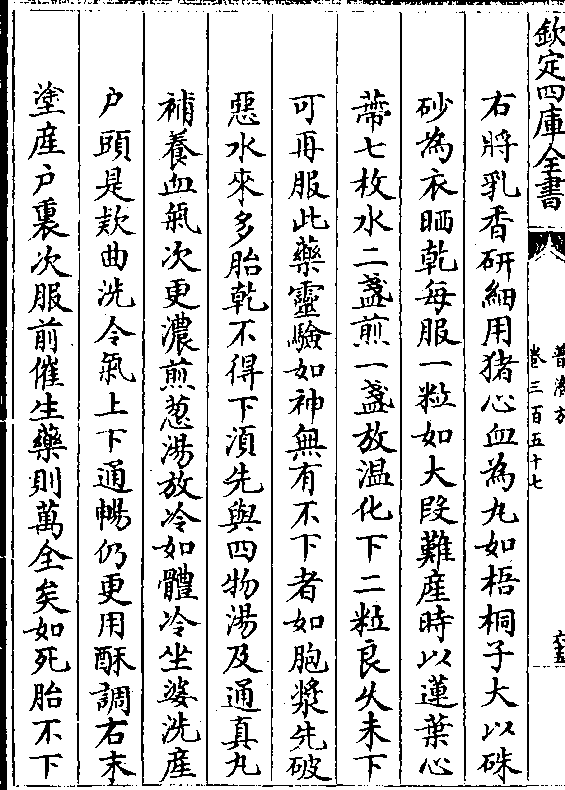 欽定四庫全書
普濟方
卷三百五十七
六五
右將乳香研細用猪心血為丸如梧桐子大以硃
砂為衣晒乾每服一粒如大段難產時以蓮葉心
蒂七枚水二盞煎一盞放温化下二粒良乆未下
可再服此藥靈驗如神無有不下者如胞漿先破
惡水來多胎乾不得下湏先與四物湯及通真丸
補養血氣次更濃煎葱湯放冷如體冷坐婆洗産
户頭是欵曲洗令氣上下通暢仍更用酥調右末
塗産户裏次服前催生藥則萬全矣如死胎不下